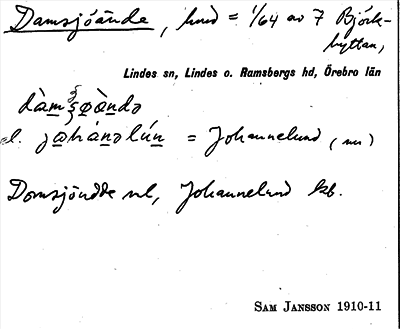 Damsjöände, hmd = 1/64 av 7 Björk-
hyttan,
Lindes sn, Lindes o. Ramsbergs hd, Örebro län
dàmʂøǹdə
el. jəhánəlún = Johannelund (nu)
Domsjöndde nl, Johannelund kb.
SAM JANSSON 1910-11